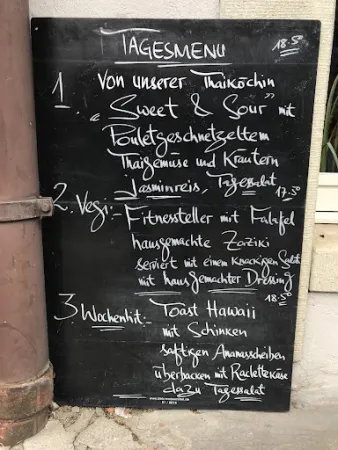 TAGESMENU 18.50
1. Von unserer Thaiköchin
"Sweet & Sour" mit
Pouletgeschnetzeltem
Thaigemüse und Kräutern
Jasminreis, Tagessalat
17.50
2. Vegi:- Fitnessteller mit Falafel
hausgemachte Zaziki
serviert mit einem knackigen Salat
mit hausgemachter Dressing
18.50
3. Wochenhit:- Toast Hawaii
mit Schinken
saftigen Ananasscheiben
überbacken mit Raclettekäse
dazu Tagessalat